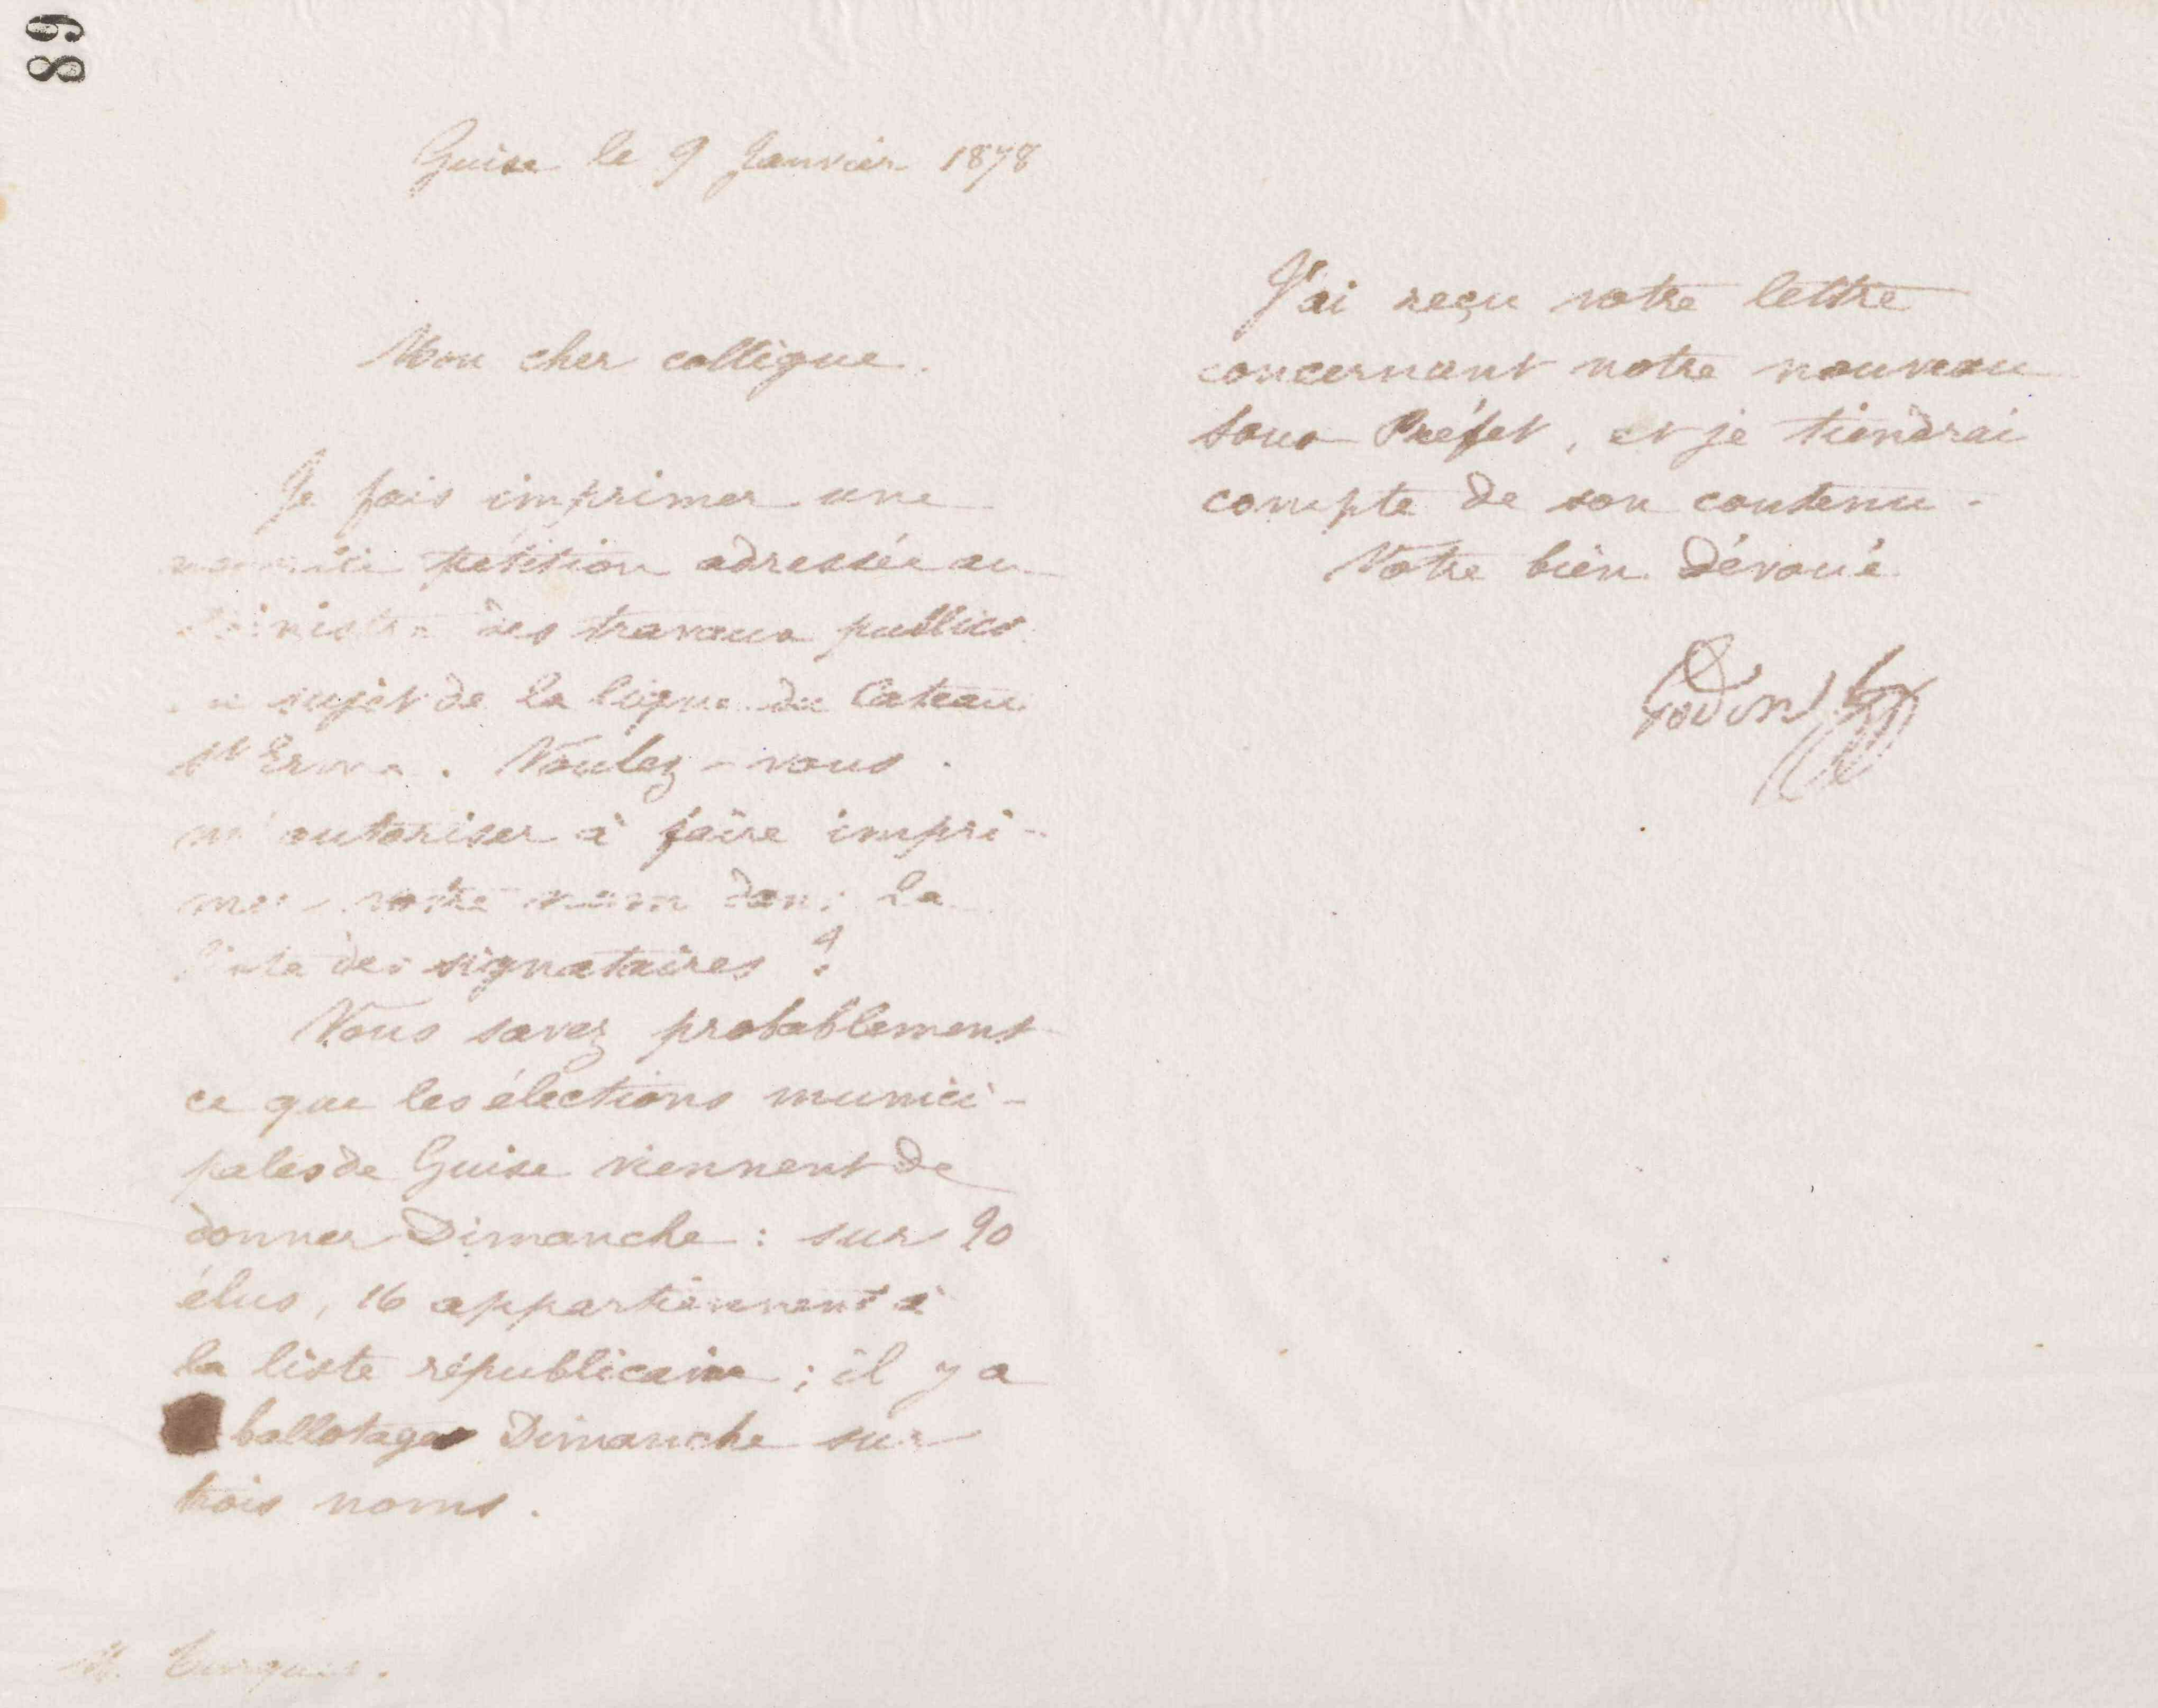 89
Guise le 9 Janvier 1878
Mon cher collègue.
Je fais imprimer une
nouvelle pétition adressée au
Ministre des travaux publics
au sujet de la ligne du Cateau
St Erme. Voulez-vous
m'autoriser à faire impri-
mer votre nom dans la
liste des signataires ?
Vous savez probablement
ce que les élections munici-
pales de Guise viennent de
donner Dimanche : sur 20
élus, 16 appartiennent à
la liste républicaine ; il y a
ballotage Dimanche sur
trois noms.
M. Turquet.
J'ai reçu votre lettre
concernant notre nouveau
sous Préfet, et je tiendrai
compte de son contenu.
Votre bien dévoué
Godin